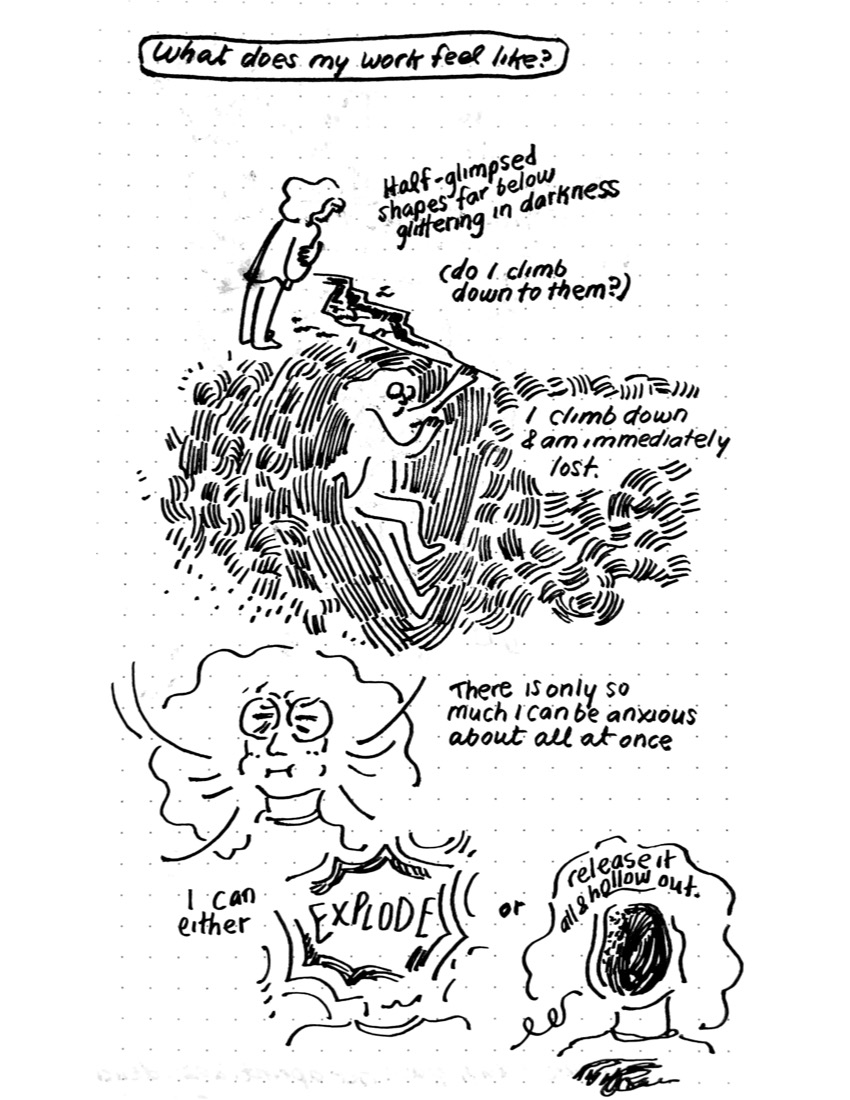 What does my work feel like?
Half-glimpsed
shapes far below
glittering in darkness
(do I climb
down to them?)
I climb down
& am immediately
lost.
There is only so
much I can be anxious
about all at once
I can
either
EXPLODE
or
release it
all & hollow out.